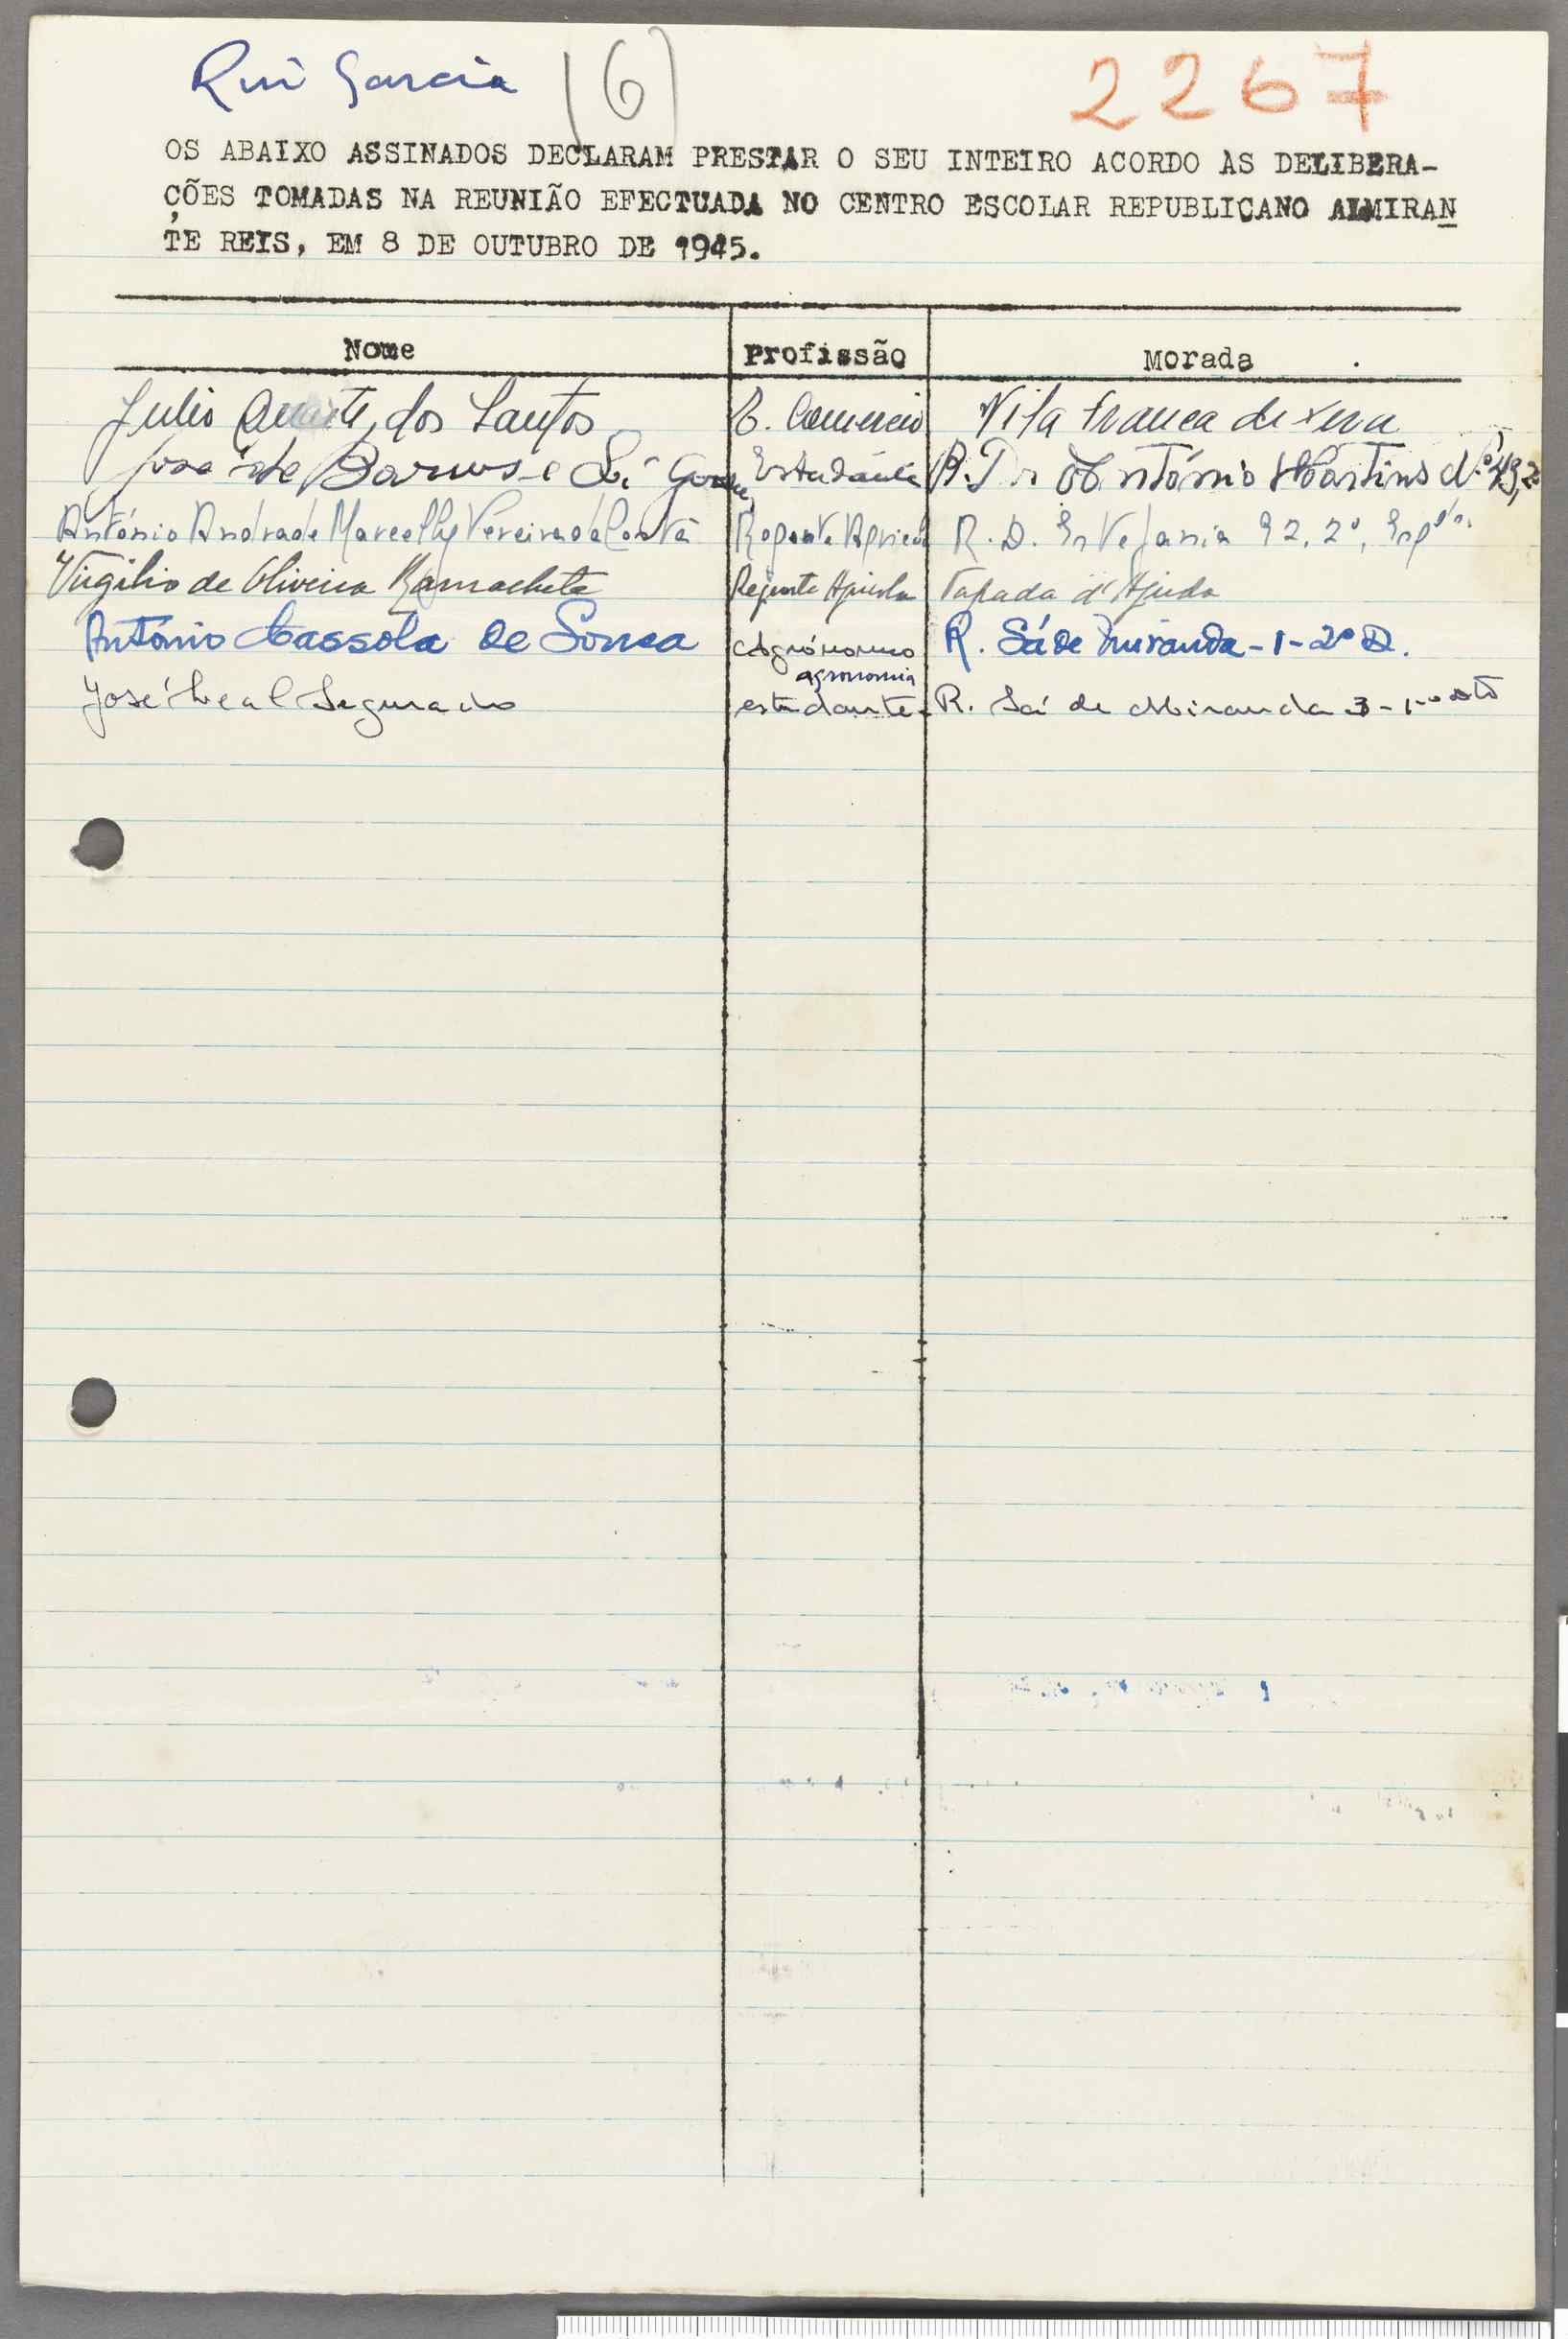 Rui Garcia (6) 2267
OS ABAIXO ASSINADOS DECLARAM PRESTAR O SEU INTEIRO ACORDO AS DELIBERA-
ÇÕES TOMADAS NA REUNIÃO EFECTUADA NO CENTRO ESCOLAR REPUBLICANO ALMIRAN
TE REIS, EM 8 DE OUTUBRO DE 1945.
Nome Profissão Morada
Julio Duarte dos Santos E. Comercio Vila Franca de Xira
José de Barros e Sá Gomes Estudante R. Dr António Martins N.º 43, 2
António Andrade Pereira da Costa Regente Agricola R. D. Estefania 92, 2º, Esqdo.
Virgilio de Oliveira Ramachete Regente Agricola Tapada d'Ajuda
António Cassola de Sousa Agrónomo R. Sá de Miranda - 1 - 2º D.
agronomia
José Leal Segurado estudante - R. Sá de Miranda 3 - 1º